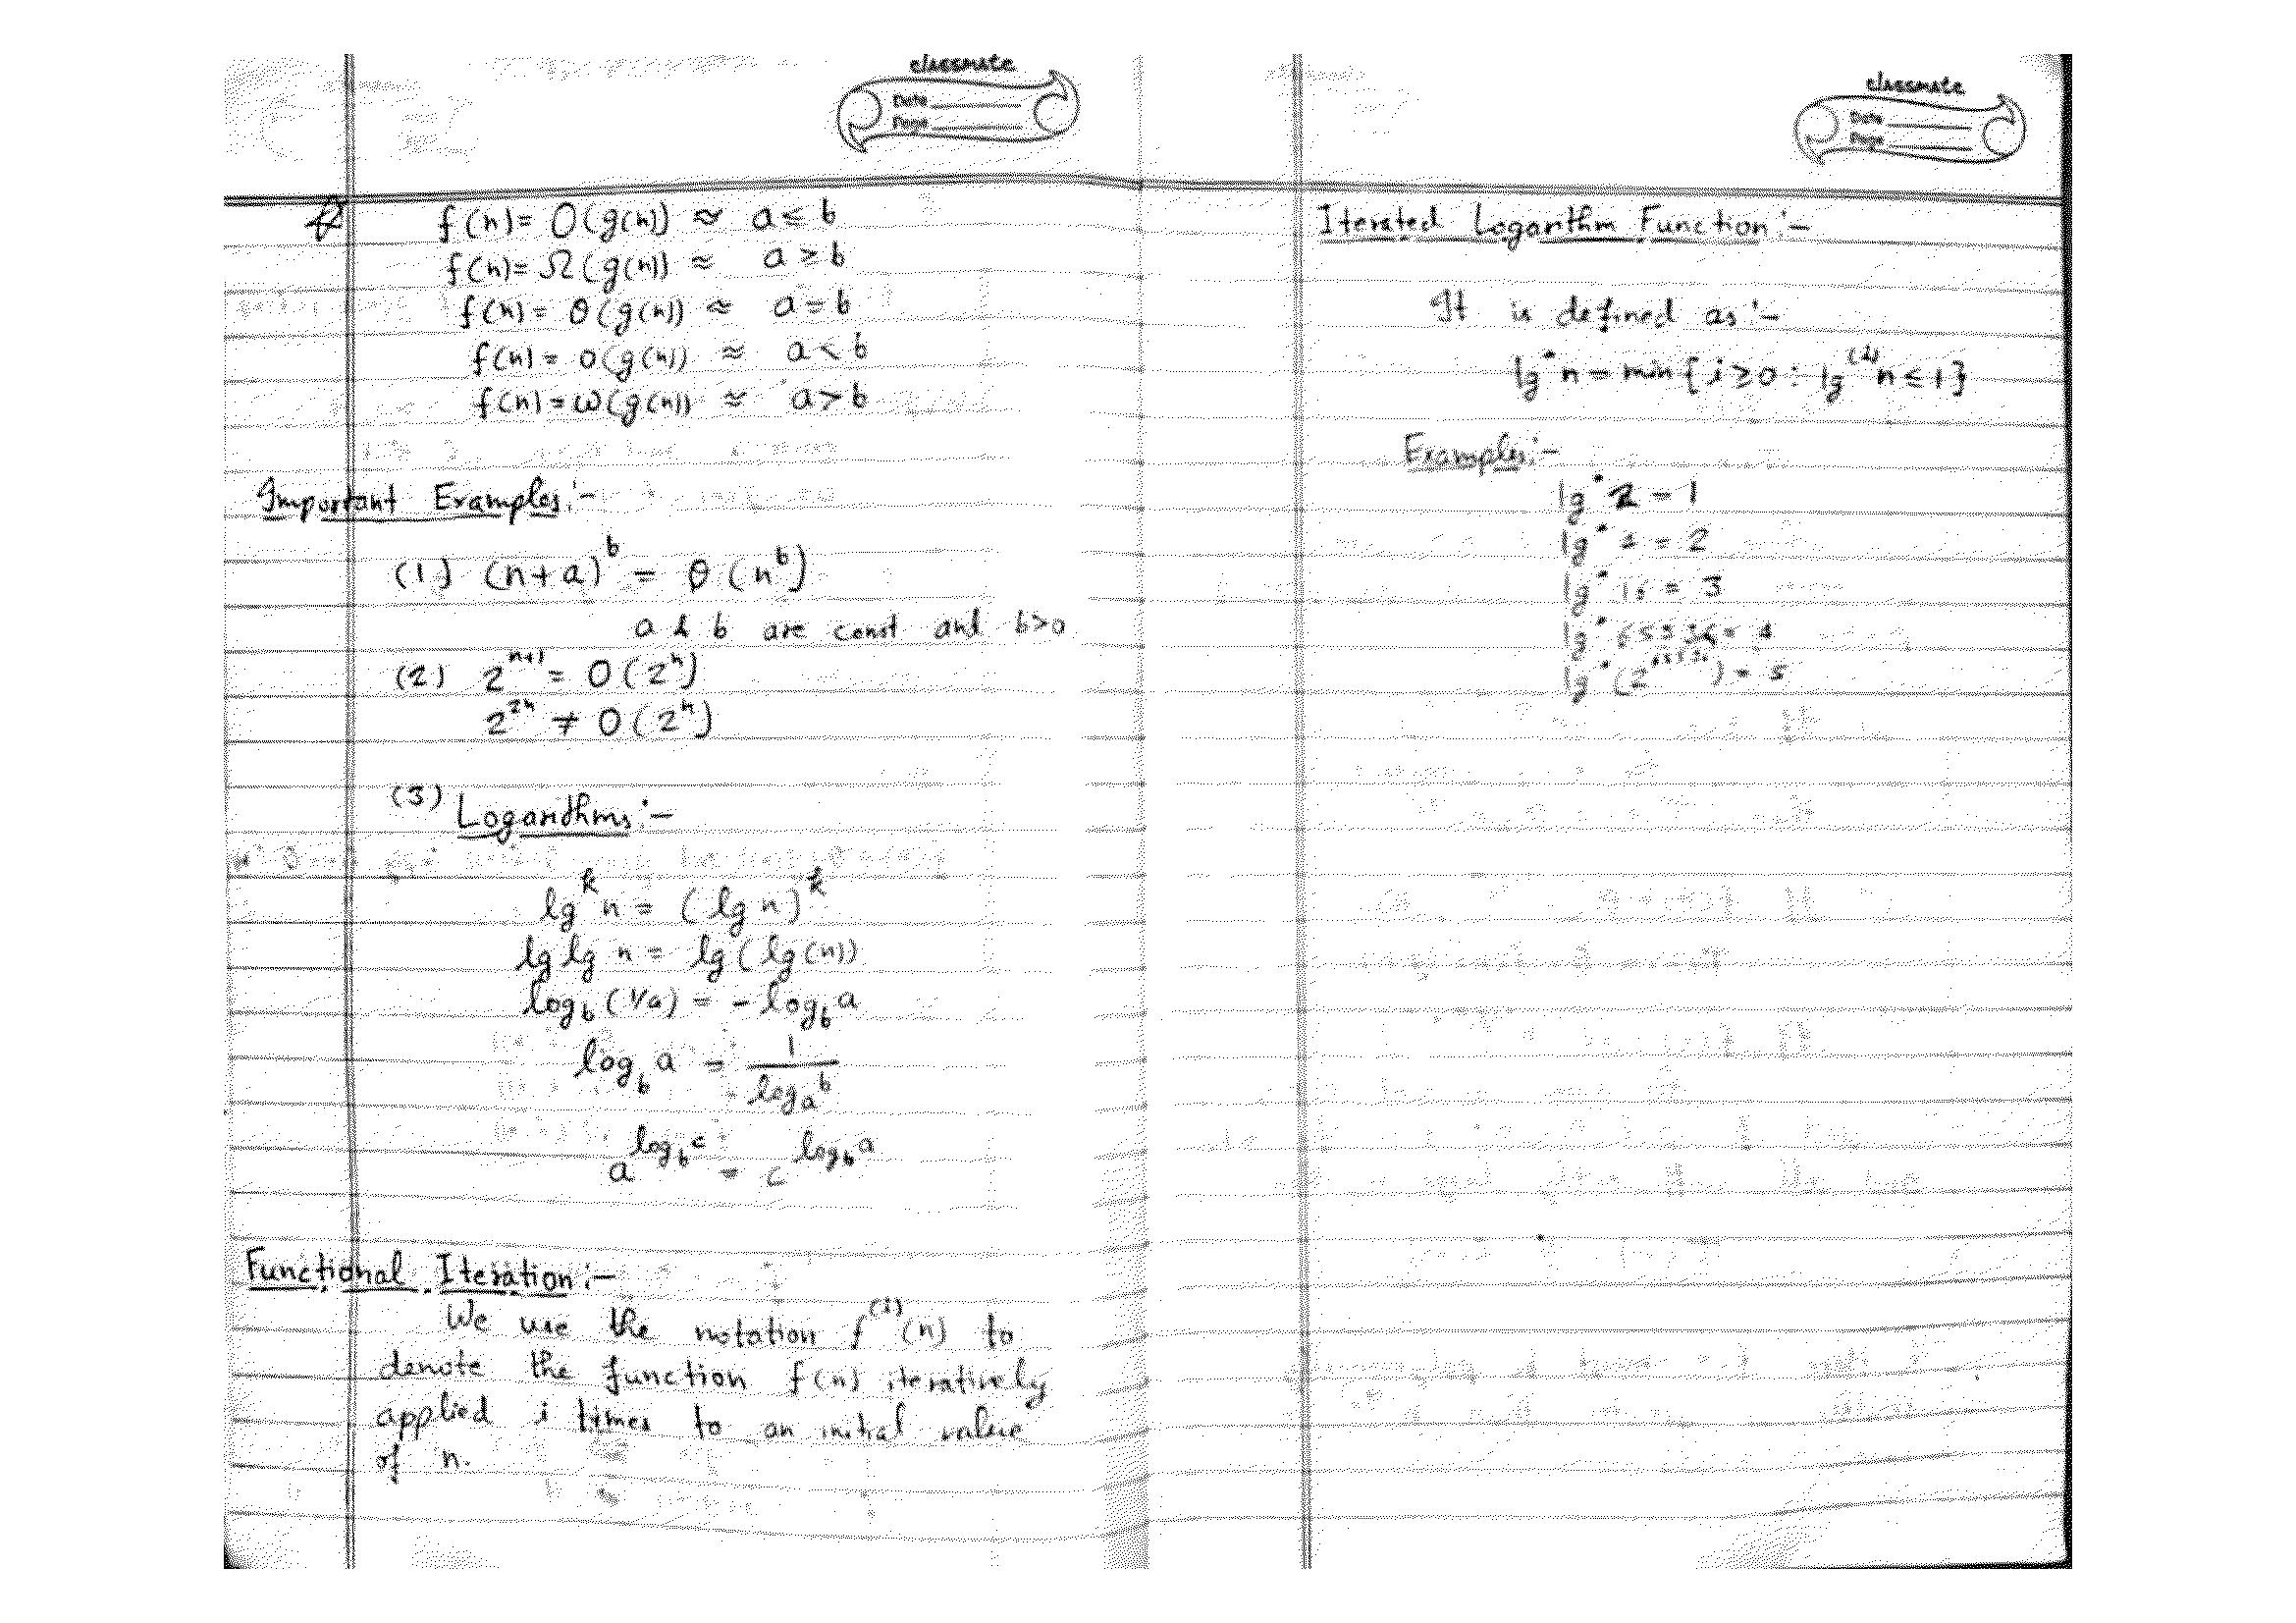 classmate
Date
Page
f(n) = O(g(n)) ≈ a ≤ b
f(n) = Ω(g(n)) ≈ a ≥ b
f(n) = θ(g(n)) ≈ a = b
f(n) = o(g(n)) ≈ a < b
f(n) = ω(g(n)) ≈ a > b
Important Examples:-
(1) (n+a)^b = θ(n^b)
a & b are const and b>0
(2) 2^(n+1) = O(2^n)
2^(2n) ≠ O(2^n)
(3) Logarithms:-
lg^k n = (lg n)^k
lg lg n = lg(lg(n))
log_b (1/a) = - log_b a
log_b a = 1 / log_a b
a^(log_b c) = c^(log_b a)
Functional Iteration:-
We use the notation f^(i)(n) to
denote the function f(n) iteratively
applied i times to an initial value
of n.
classmate
Date
Page
Iterated Logarithm Function:-
It is defined as:-
lg* n = min{i ≥ 0 : lg^(i) n ≤ 1}
Examples:-
lg* 2 = 1
lg* 4 = 2
lg* 16 = 3
lg* 65536 = 4
lg* (2^65536) = 5